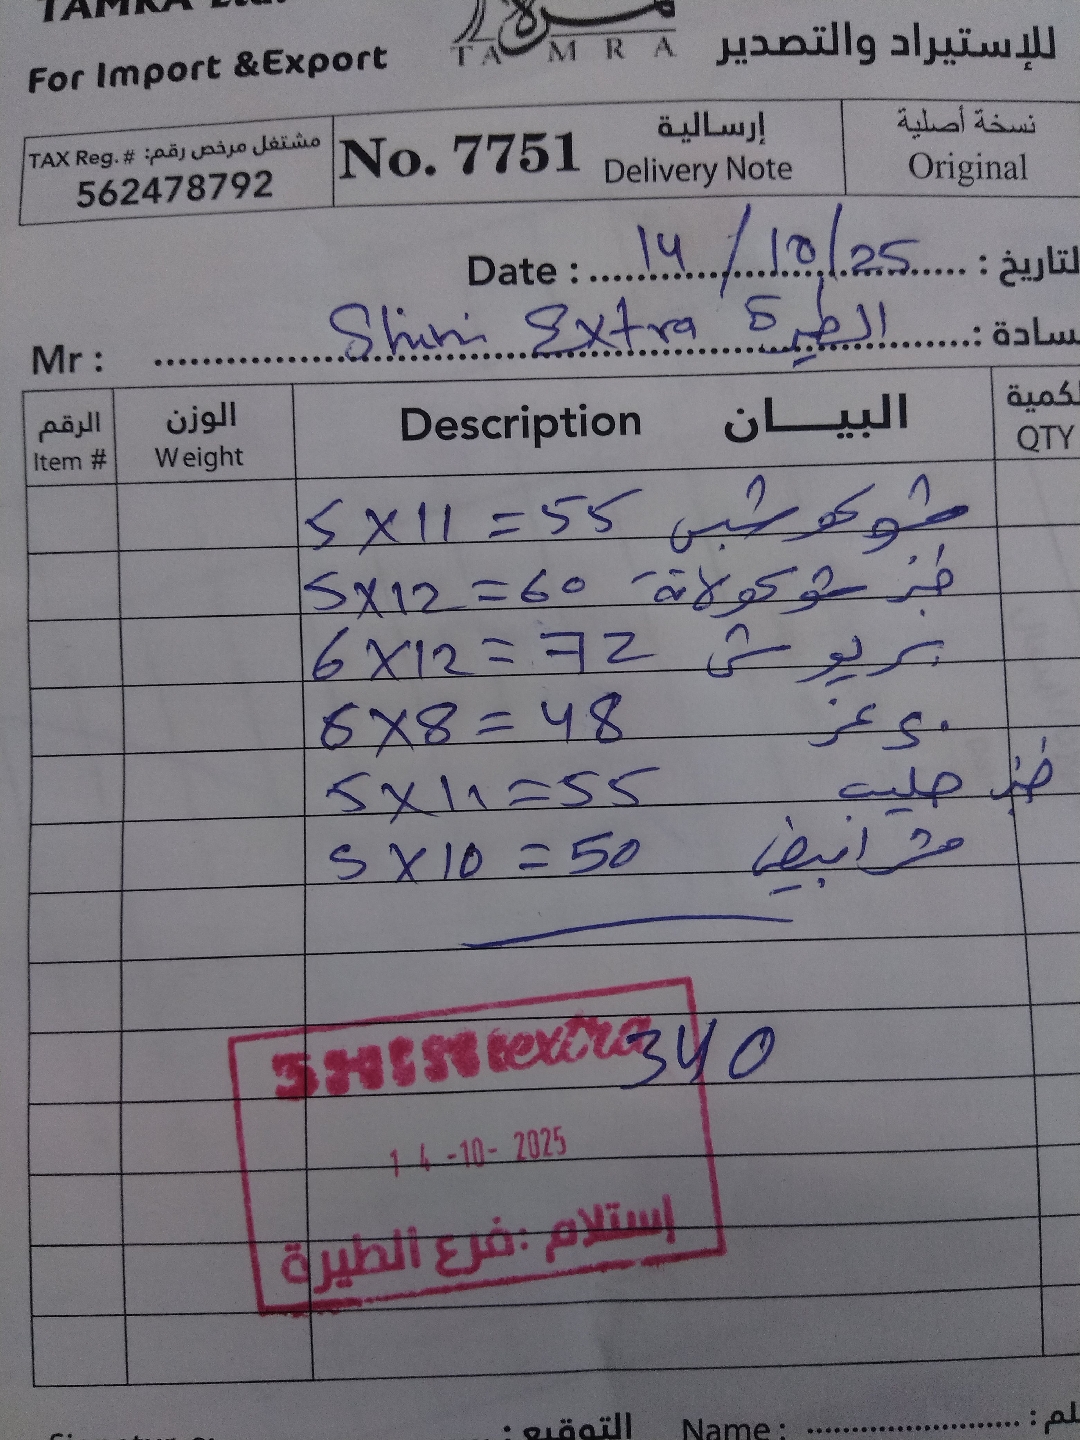 TAMRA Ltd.
For Import &Export
TAMRA
للإستيراد والتصدير
TAX Reg. # مشتغل مرخص رقم:
562478792
No. 7751
إرسالية
Delivery Note
نسخة أصلية
Original
Date : 14/10/25 لتاريخ :
Mr : Shini Extra الطيرة سادة :
الرقم
Item #
الوزن
Weight
Description البيـــان
كمية
QTY
5 x 11 = 55
5 x 12 = 60 خبز شوكولاتة
6 x 12 = 72 بريوش
6 x 8 = 48
5 x 11 = 55 خبز حليب
5 x 10 = 50
340
SHINI extra
14-10-2025
إستلام : فرع الطيرة
التوقيع :
Name : لم :